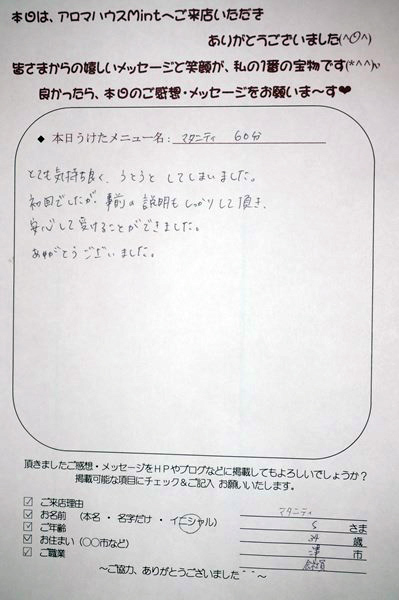 本日は、アロマハウスMintへご来店いただき
ありがとうございました(^O^)
皆さまからの嬉しいメッセージと笑顔が、私の1番の宝物です(*^^*)
良かったら、本日のご感想・メッセージをお願いま～す♥
◆ 本日うけたメニュー名: マタニティ 60分
とても気持ち良く、うとうと してしまいました。
初回でしたが、事前の説明もしっかりして頂き、
安心して受けることができました。
ありがとうございました。
頂きましたご感想・メッセージをHPやブログなどに掲載してもよろしいでしょうか?
掲載可能な項目にチェック&ご記入 お願いいたします。
☑ ご来店理由 マタニティ
☑ お名前 (本名 ・ 名字だけ ・ イニシャル) S さま
☑ ご年齢 34 歳
☑ お住まい (○○市など) 津 市
☑ ご職業
～ご協力、ありがとうございました＾－＾～